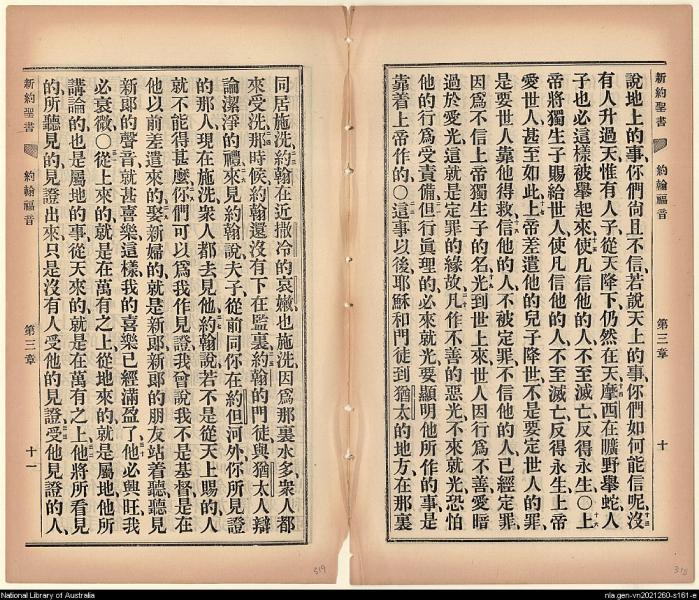 新約聖書
約翰福音
第三章
十
說地上的事、你們尙且不信、若說天上的事、你們如何能信呢、沒
有人升過天、惟有人子從天降下、仍然在天、摩西在曠野舉蛇、人
子也必這樣被舉起來、使凡信他的人、不至滅亡、反得永生、○上
帝將獨生子賜給世人、使凡信他的人、不至滅亡、反得永生、上帝
愛世人、甚至如此、上帝差遣他的兒子降世、不是要定世人的罪、
是要世人靠他得救、信他的人、不被定罪、不信他的人、已經定罪、
因爲不信上帝獨生子的名、光到世上來、世人因行爲不善、愛暗
過於愛光、這就是定罪的緣故、凡作不善的惡光、不來就光、恐怕
他的行爲受責備、但行眞理的、必來就光、要顯明他所作的事、是
靠着上帝作的、○這事以後、耶穌和門徒到猶太的地方、在那裏
同居施洗、約翰在近撒冷的哀嫩也施洗、因爲那裏水多、衆人都
來受洗、那時候約翰還沒有下在監裏、約翰的門徒與猶太人辯
論潔淨的禮、來見約翰說、夫子、從前同你在約但河外、你所見證
的那人、現在施洗、衆人都去見他、約翰說、若不是從天上賜的、人
就不能得甚麼、你們可以爲我作見證、我曾說我不是基督、是在
他以前差遣來的、娶新婦的、就是新郎、新郎的朋友站着、聽見
新郎的聲音、就甚喜樂、這樣我的喜樂已經滿盈了、他必興旺、我
必衰微、○從上來的、就是在萬有之上、從地來的、就是屬地、他所
講論的、也是屬地的事、從天來的、就是在萬有之上、他將所看見
的所聽見的、見證出來、只是沒有人受他的見證、受他見證的人、
新約聖書
約翰福音
第三章
十一
319
318
National Library of Australia
nla.gen-vn2021260-s161-e